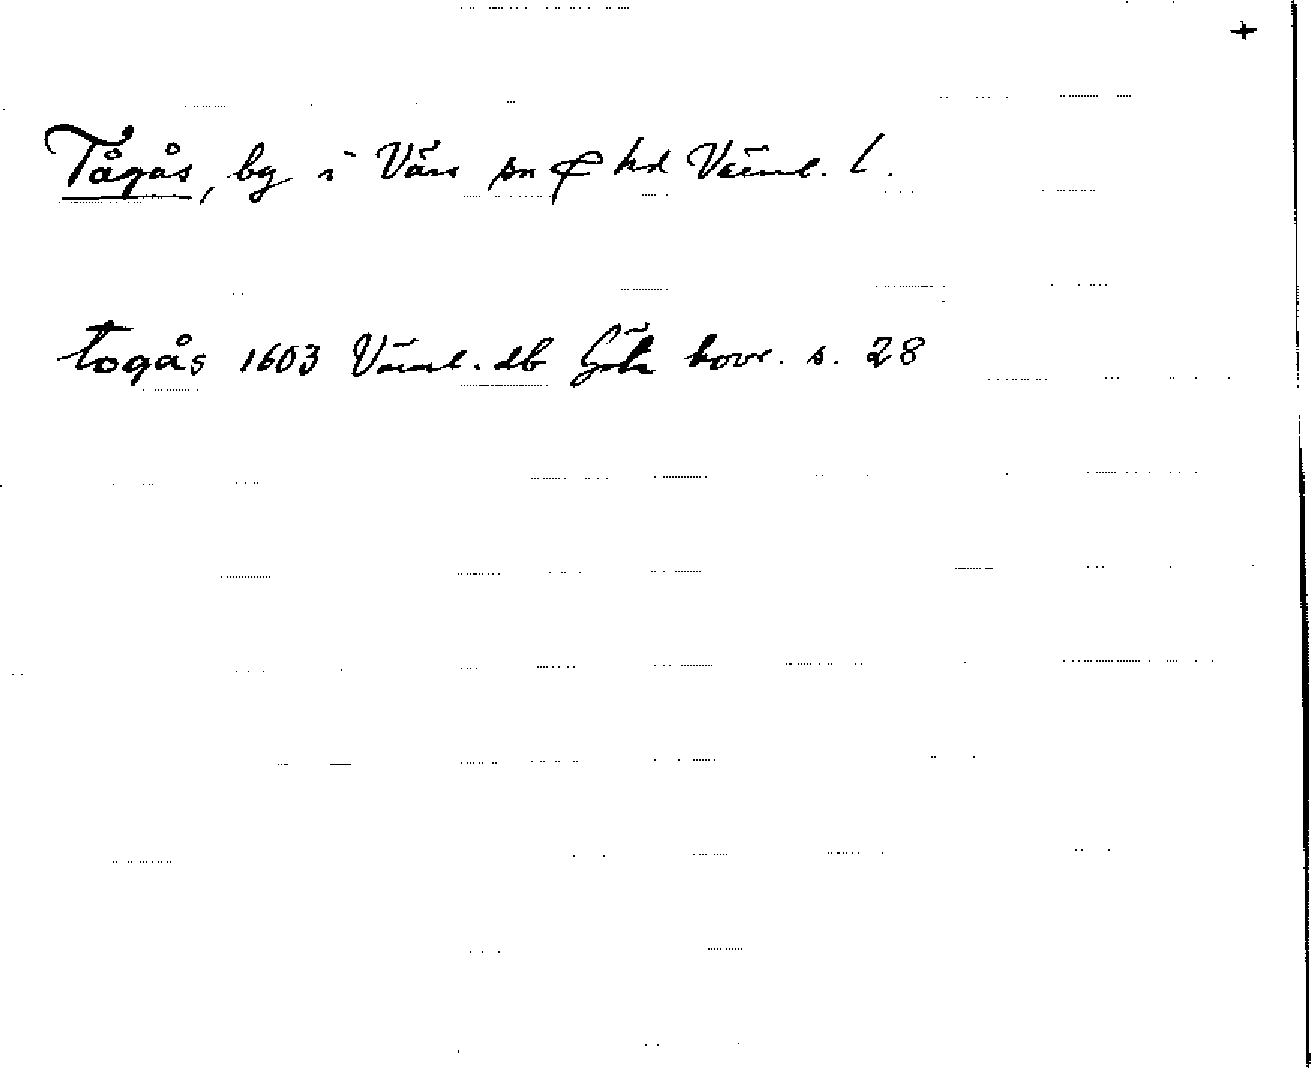 +
Tågås, by i Värs sn ₵ hd Värml. l.
togås 1603 Värml. db Göta hovr. s. 28